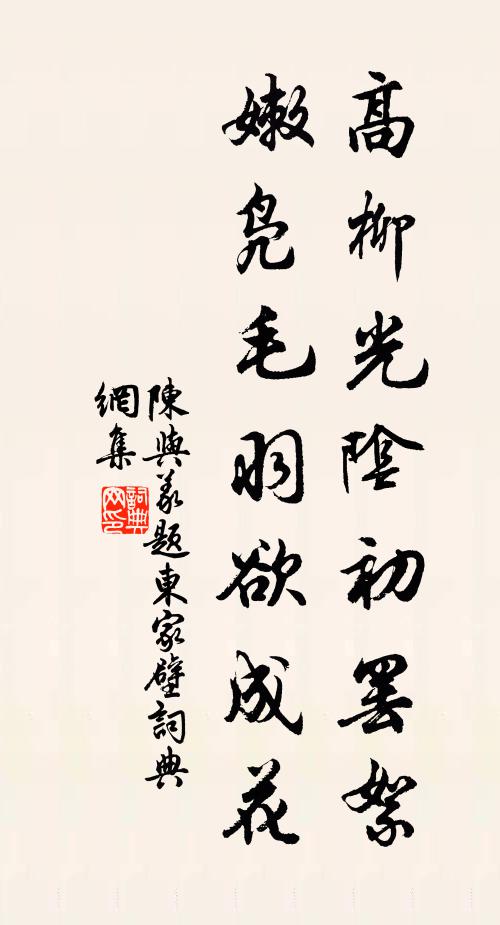 高柳光陰初罷絮
嫩鳧毛羽欲成花
陳與義題東家壁詞典
網集
詞典网印